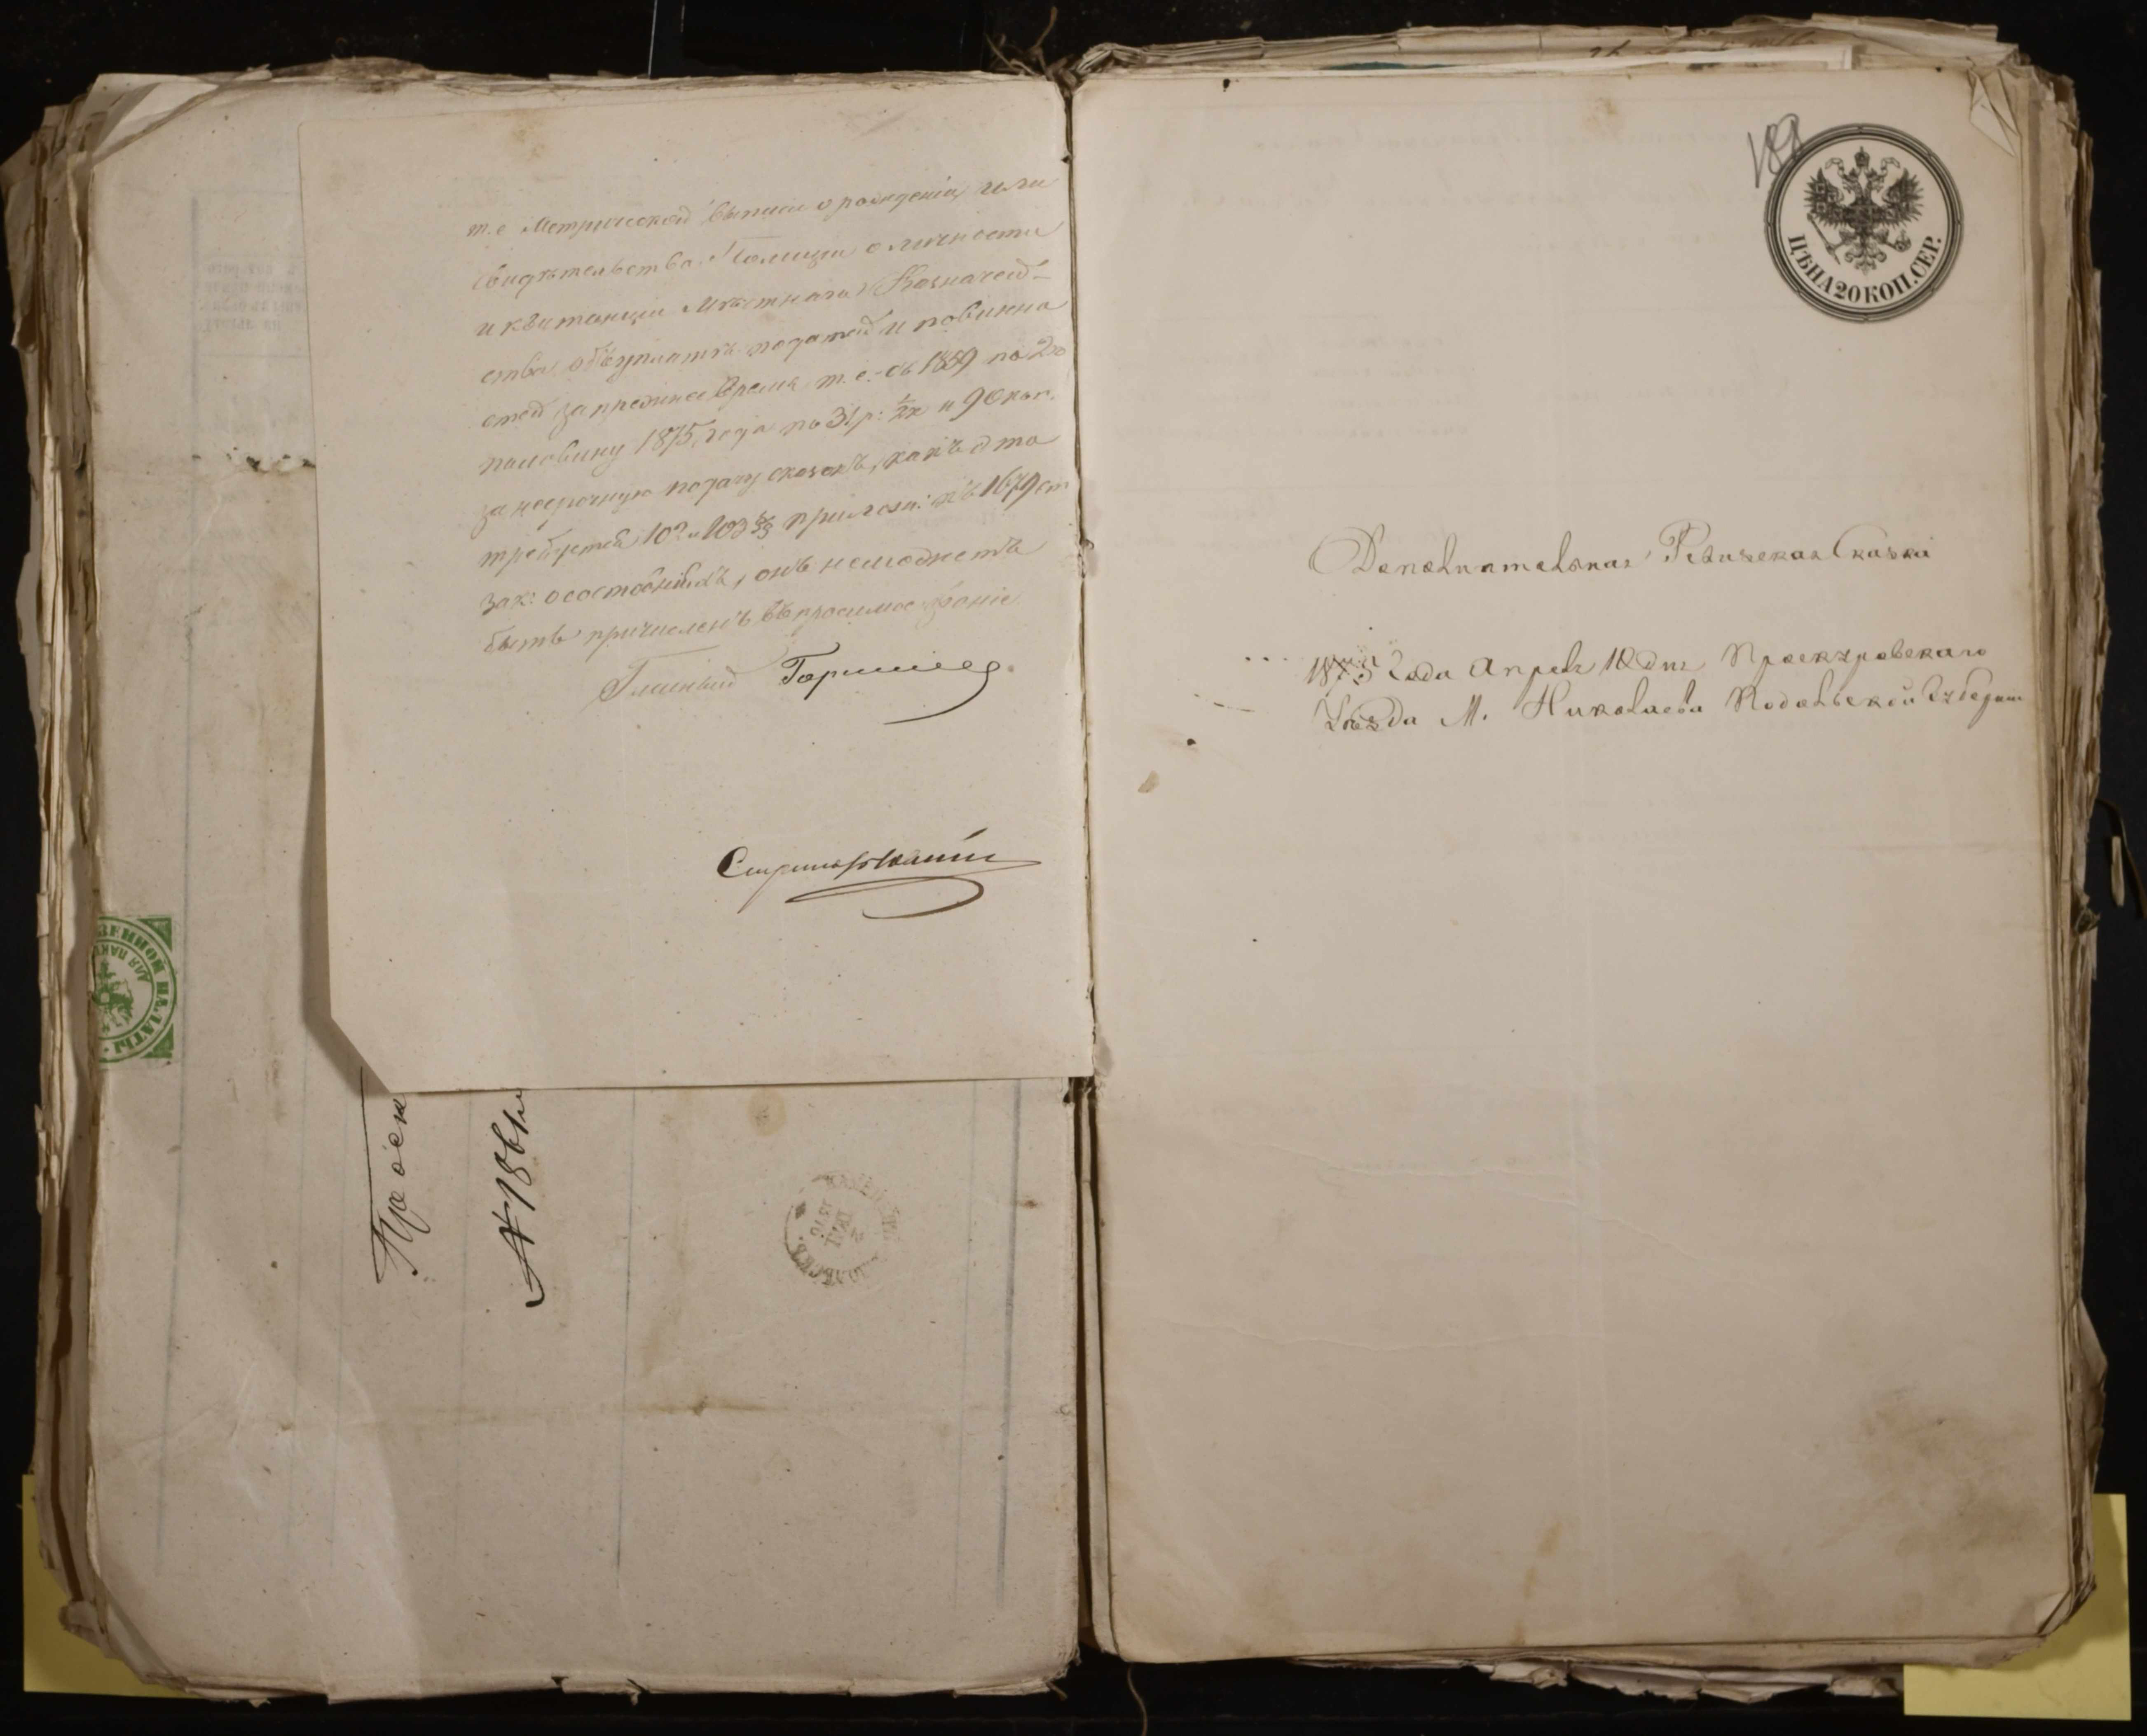 т.е Метрической выписи о рожденіи, или
свидѣтельства Полиціи о личности
и квитанціи Мѣстнаго Казначей-
ства объ уплатѣ податей и повинно
стей за прежнее время т.е.-съ 1859 по 2ю
половину 1875 года по 31 р: ½ к и 90 коп.
за несрочную подачу сказокъ, какъ это
требуется 102 и 103 §§ прилож: къ 1679 ст
зак: о состояніяхъ, онъ не можетъ
быть причисленъ въ просимое званіе
188
ЦѢНА 20 КОП. СЕР.
Дополнительная Ревизская Сказка
1875 Года Апреля 18 дня Проскуровскаго
Уѣзда М. Николаева Подольской Губерніи
ЗЕННОЙ ПАЛАТЫ
ДЛЯ ПАКЕ
Проск